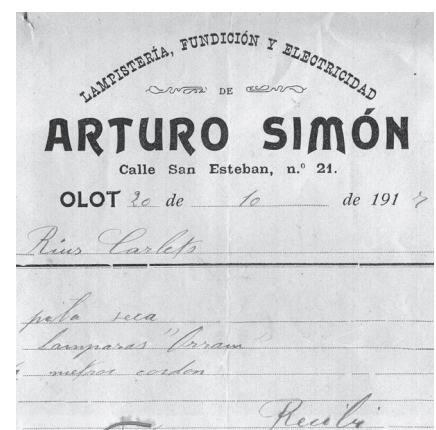 LAMPISTERÍA, FUNDICIÓN Y ELECTRICIDAD
DE
ARTURO SIMÓN
Calle San Esteban, n.º 21.
OLOT 20 de 10 de 191
Rius Carlets
pila seca
lamparas "Osram"
metros cordon
Recibi